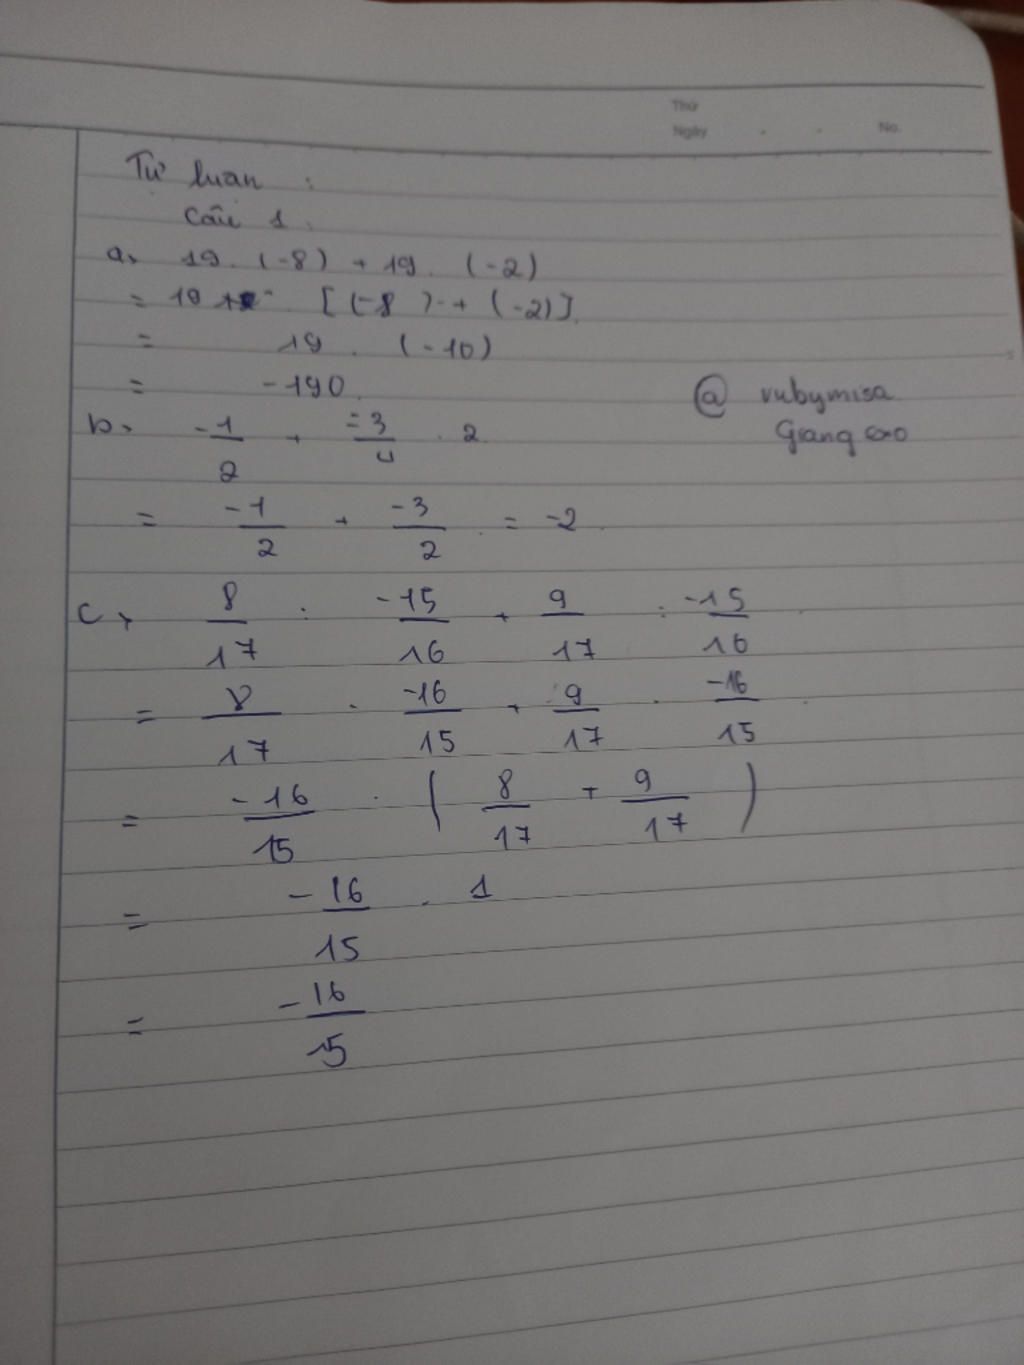 Thứ
Ngày . . No.
Tự luan :
Câu 1.
a, 19. (-8) + 19. (-2)
= 19 . [(-8) + (-2)].
= 19 . (-10)
= -190.
@ vubymisa
Giang cao
b, -1/2 + -3/4 . 2
= -1/2 + -3/2 . = -2.
c, 8/17 : -15/16 + 9/17 : -15/16
= 8/17 . -16/15 + 9/17 . -16/15 .
= -16/15 . ( 8/17 + 9/17 )
= -16/15 . 1
= -16/15